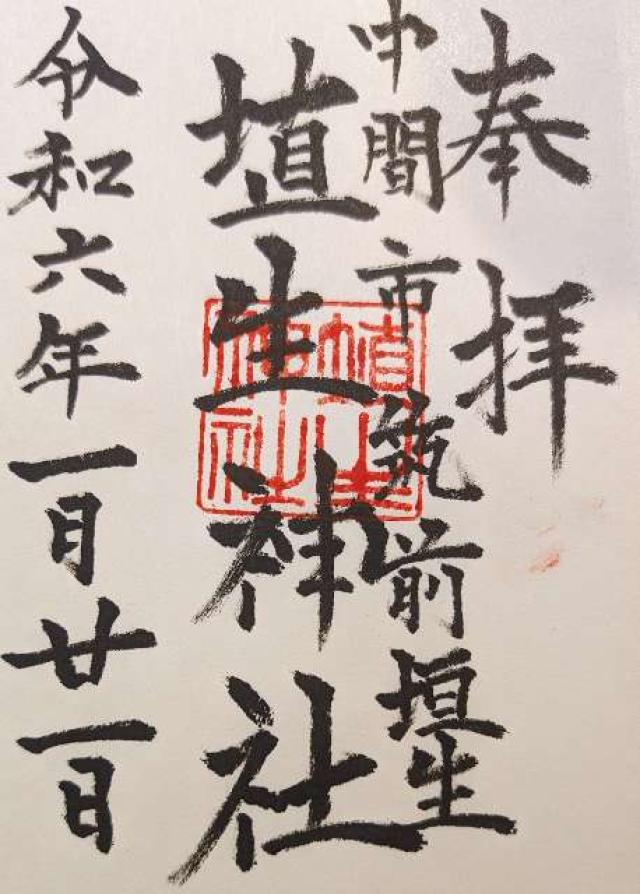 奉拝
中間市筑前垣生
埴生神社
埴生
神社
令和六年一月廿一日